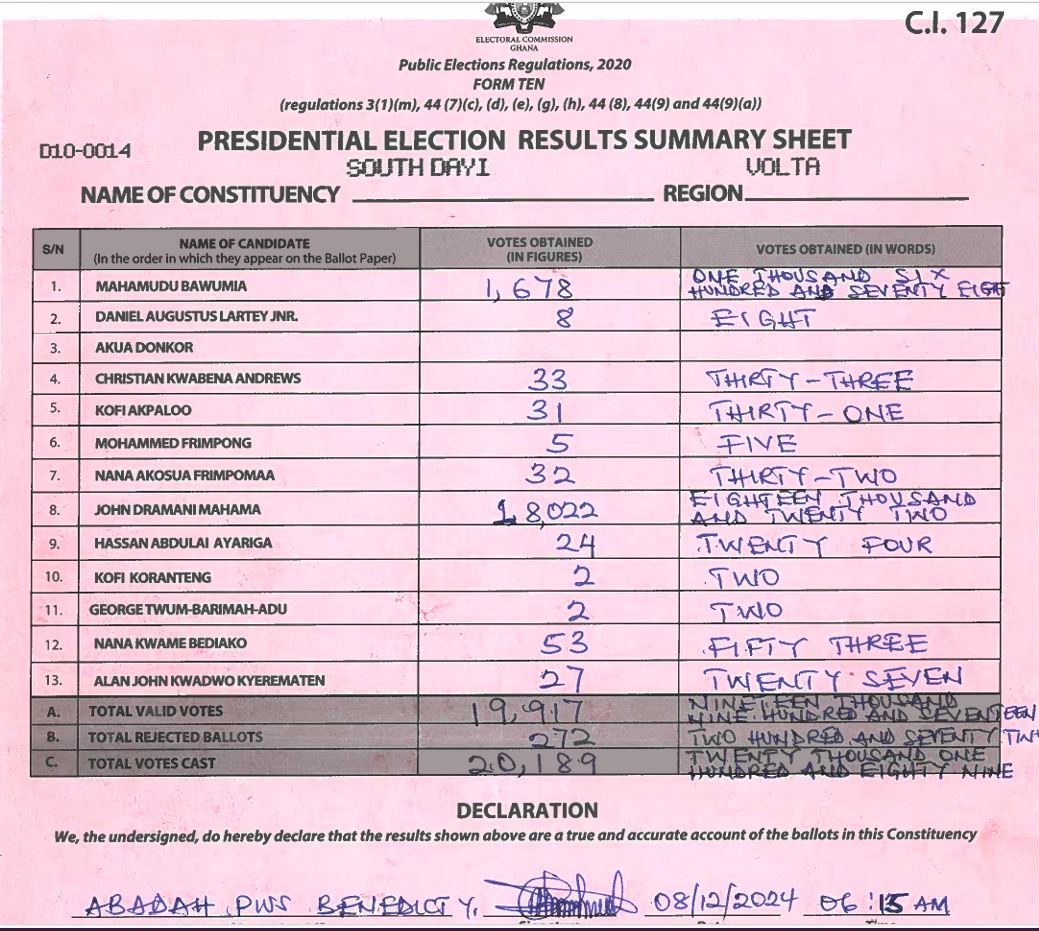 C.I. 127
ELECTORAL COMMISSION
GHANA
Public Elections Regulations, 2020
FORM TEN
(regulations 3(1)(m), 44 (7)(c), (d), (e), (g), (h), 44 (8), 44(9) and 44(9)(a))
PRESIDENTIAL ELECTION RESULTS SUMMARY SHEET
D10-0014
SOUTH DAYI VOLTA
NAME OF CONSTITUENCY REGION
S/N NAME OF CANDIDATE (In the order in which they appear on the Ballot Paper) VOTES OBTAINED (IN FIGURES) VOTES OBTAINED (IN WORDS)
1. MAHAMUDU BAWUMIA 1,678 ONE THOUSAND SIX HUNDRED AND SEVENTY EIGHT
2. DANIEL AUGUSTUS LARTEY JNR. 8 EIGHT
3. AKUA DONKOR
4. CHRISTIAN KWABENA ANDREWS 33 THIRTY-THREE
5. KOFI AKPALOO 31 THIRTY-ONE
6. MOHAMMED FRIMPONG 5 FIVE
7. NANA AKOSUA FRIMPOMAA 32 THIRTY-TWO
8. JOHN DRAMANI MAHAMA 18,022 EIGHTEEN THOUSAND AND TWENTY TWO
9. HASSAN ABDULAI AYARIGA 24 TWENTY FOUR
10. KOFI KORANTENG 2 TWO
11. GEORGE TWUM-BARIMAH-ADU 2 TWO
12. NANA KWAME BEDIAKO 53 FIFTY THREE
13. ALAN JOHN KWADWO KYEREMATEN 27 TWENTY SEVEN
A. TOTAL VALID VOTES 19,917 NINETEEN THOUSAND NINE HUNDRED AND SEVENTEEN
B. TOTAL REJECTED BALLOTS 272 TWO HUNDRED AND SEVENTY TW
C. TOTAL VOTES CAST 20,189 TWENTY THOUSAND ONE HUNDRED AND EIGHTY NINE
DECLARATION
We, the undersigned, do hereby declare that the results shown above are a true and accurate account of the ballots in this Constituency
ABADAH PWS BENEDICT Y. 08/12/2024 06:15 AM